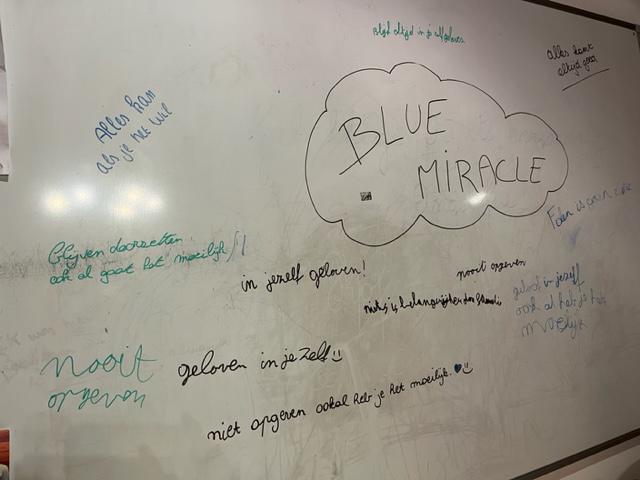 Blijf altijd in je geloven
Alles komt
altijd goed
Alles kan
als je het wil
BLUE
MIRACLE
Blijven doorzetten
ook al gaat het moeilijk
in jezelf geloven!
nooit opgeven
niks is belangrijker dan
geloof in jezelf
ook al heb je het
moeilijk
nooit
opgeven
geloven in je zelf
niet opgeven ookal heb je het moeilijk.